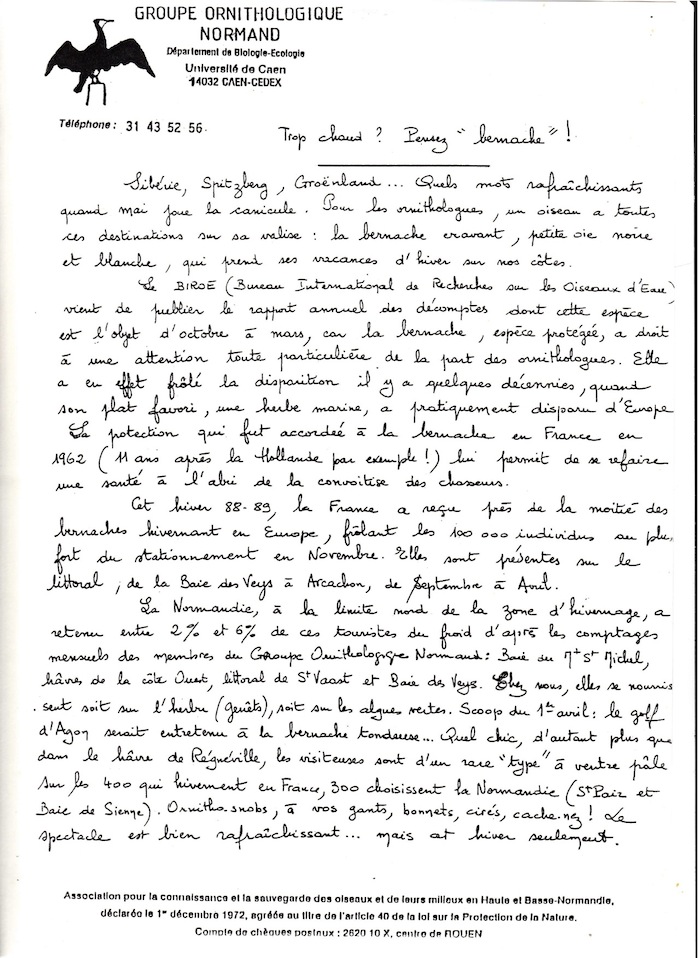 GROUPE ORNITHOLOGIQUE
NORMAND
Département de Biologie-Ecologie
Université de Caen
14032 CAEN-CEDEX
Téléphone : 31 43 52 56.
Trop chaud ? Pensez "bernache" !
Sibérie, Spitzberg, Groënland... Quels mots rafraîchissants
quand mai joue la canicule. Pour les ornithologues, un oiseau a toutes
ces destinations sur sa valise : la bernache cravant, petite oie noire
et blanche, qui prend ses vacances d'hiver sur nos côtes.
Le BIROE (Bureau International de Recherches sur les Oiseaux d'Eau)
vient de publier le rapport annuel des décomptes dont cette espèce
est l'objet d'octobre à mars, car la bernache, espèce protégée, a droit
à une attention toute particulière de la part des ornithologues. Elle
a en effet frôlé la disparition il y a quelques décennies, quand
son plat favori, une herbe marine, a pratiquement disparu d'Europe
La protection qui fut accordée à la bernache en France en
1962 (11 ans après la Hollande par exemple !) lui permit de se refaire
une santé à l'abri de la convoitise des chasseurs.
Cet hiver 88-89, la France a reçu près de la moitié des
bernaches hivernant en Europe, frôlant les 100 000 individus au plus
fort du stationnement en Novembre. Elles sont présentes sur le
littoral, de la Baie des Veys à Arcachon, de Septembre à Avril.
La Normandie, à la limite nord de la zone d'hivernage, a
retenu entre 2% et 6% de ces touristes du froid d'après les comptages
mensuels des membres du Groupe Ornithologique Normand : Baie du Mt St Michel,
hâvres de la côte Ouest, littoral de St Vaast et Baie des Veys. Chez nous, elles se nourris
sent soit sur l'herbu (Genêts), soit sur les algues vertes. Scoop du 1er avril : le golf
d'Agon serait entretenu à la bernache tondeuse... Quel chic, d'autant plus que
dans le hâvre de Régnéville, les visiteuses sont d'un rare "type" à ventre pâle
Sur les 400 qui hivernent en France, 300 choisissent la Normandie (St Pair et
Baie de Sienne). Ornitho.snobs, à vos gants, bonnets, cirés, cache.nez ! Le
spectacle est bien rafraîchissant... mais cet hiver seulement.
Association pour la connaissance et la sauvegarde des oiseaux et de leurs milieux en Haute et Basse-Normandie,
déclarée le 1er décembre 1972, agréée au titre de l'article 40 de la loi sur la Protection de la Nature.
Compte de chèques postaux : 2620 10 X, centre de ROUEN